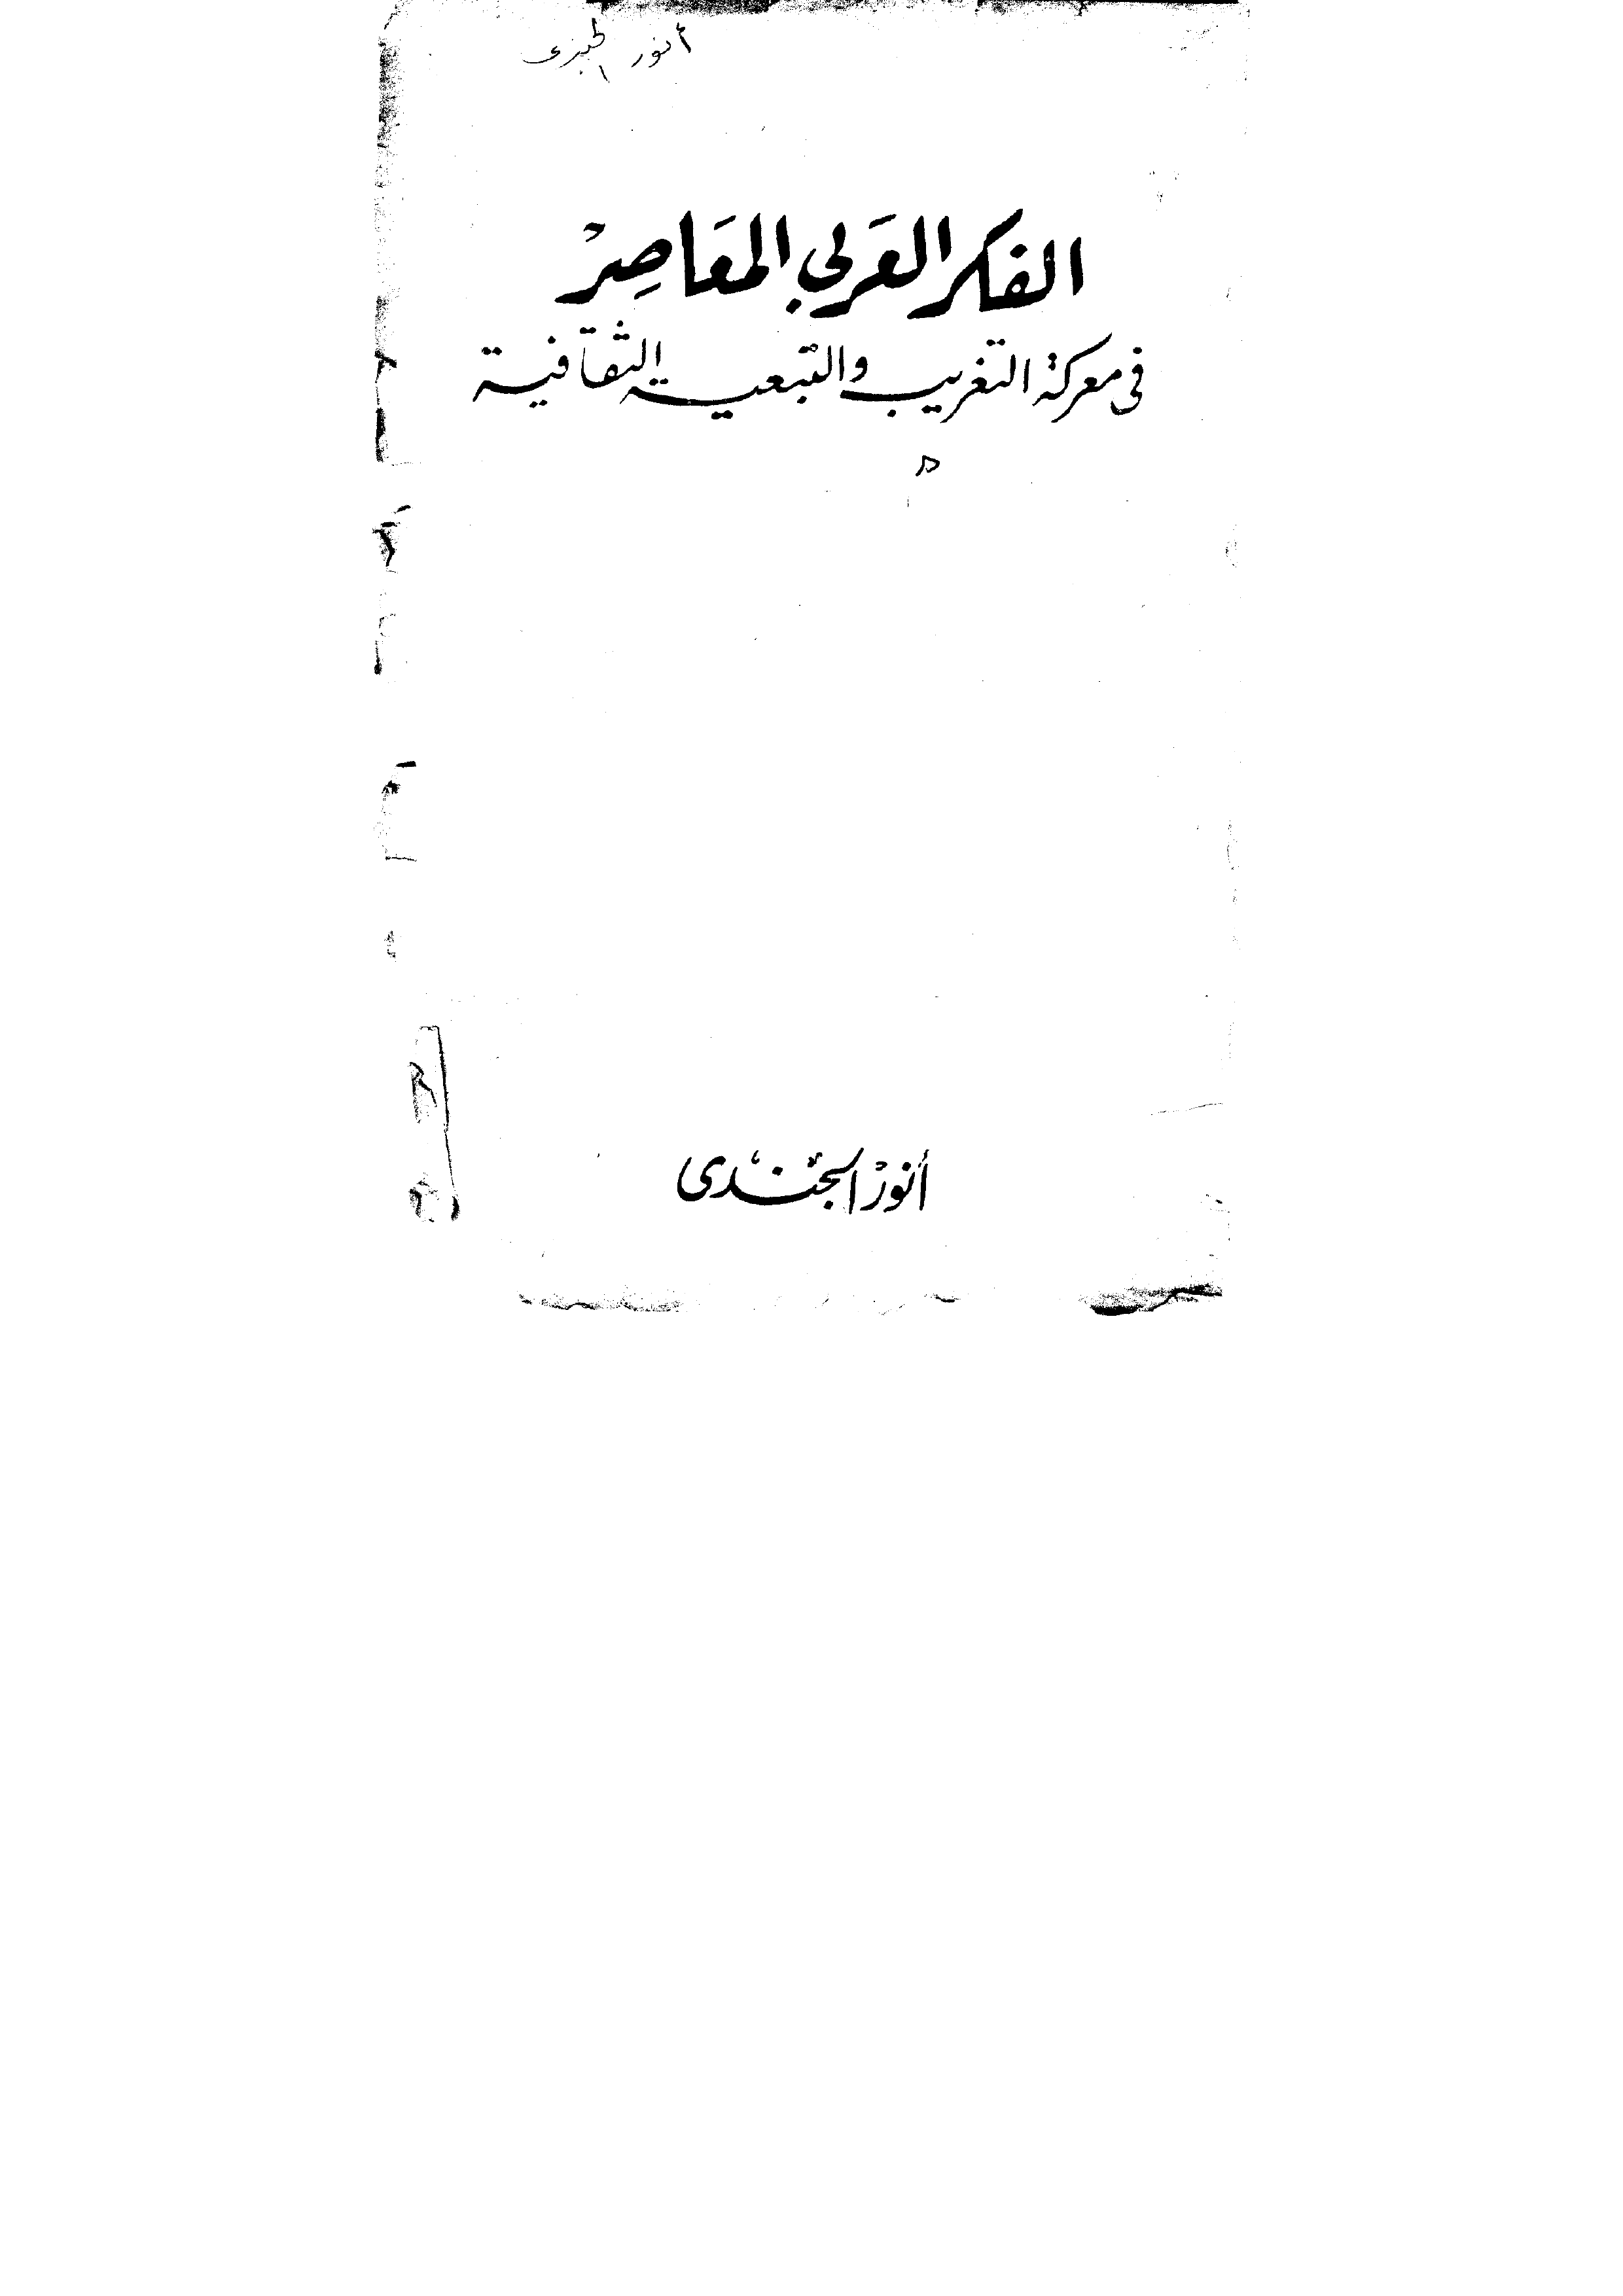 أنور
الفكر العَربي المعَاصِرْ
فى معركة التغريب والتبعية الثقافية
أنورْ الجندى